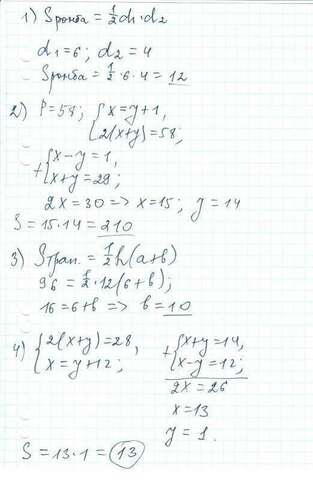 1) Sромба = 1/2 d1·d2
d1=6; d2=4
Sромба = 1/2·6·4 = 12
2) P=58; { x=y+1,
2(x+y)=58;
+ { x-y=1,
x+y=29;
2x=30 => x=15; y=14
S=15·14=210
3) Sтрап.=1/2h(a+b)
96=1/2·12(6+b);
16=6+b => b=10
4) { 2(x+y)=28,
x=y+12;
+ { x+y=14,
x-y=12;
2x=26
x=13
y=1.
S=13·1=13